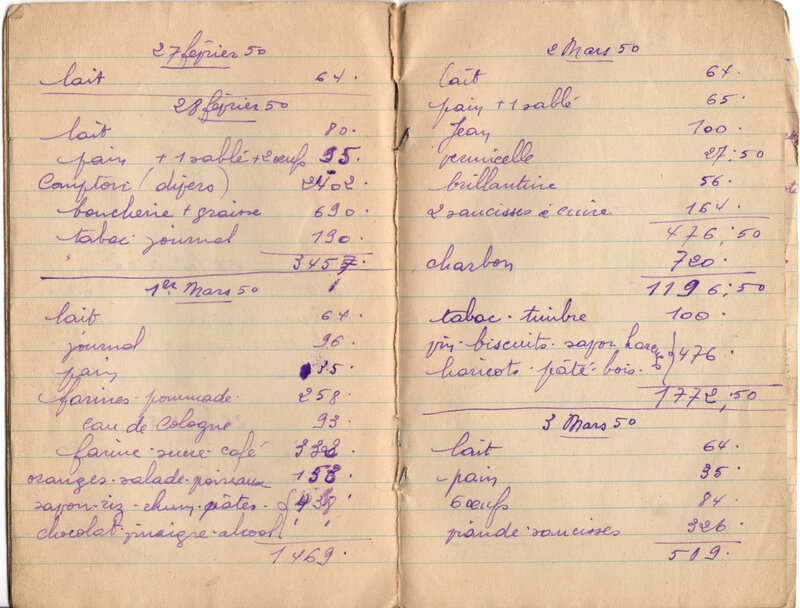 27 février 50
lait 64.
28 février 50
lait 80.
pain + 1 sablé + 2 oeufs 95
Comptoir (dijers) 2402.
boucherie + graisse 690.
tabac journal 190.
3457.
1er Mars 50
lait 64.
journal 96.
pain 35.
farines pommade. 258.
eau de Cologne 93.
farine. sucre. café 332
oranges. salade. poireaux 153
savon. riz. pâtes. 438
chocolat. vinaigre. alcool
1469.
2 Mars 50
lait 64.
pain + 1 sablé 65.
Jean 100.
vermicelle 27;50
brillantine 56.
2 saucisses à cuire 164.
476;50
charbon 720.
1196;50
tabac. timbre 100.
vin. biscuits. savon 476.
haricots. pâté. bois.
1772,50
3 Mars 50
lait 64.
pain 35.
6 oeufs 84.
viande. saucisses 326.
509.